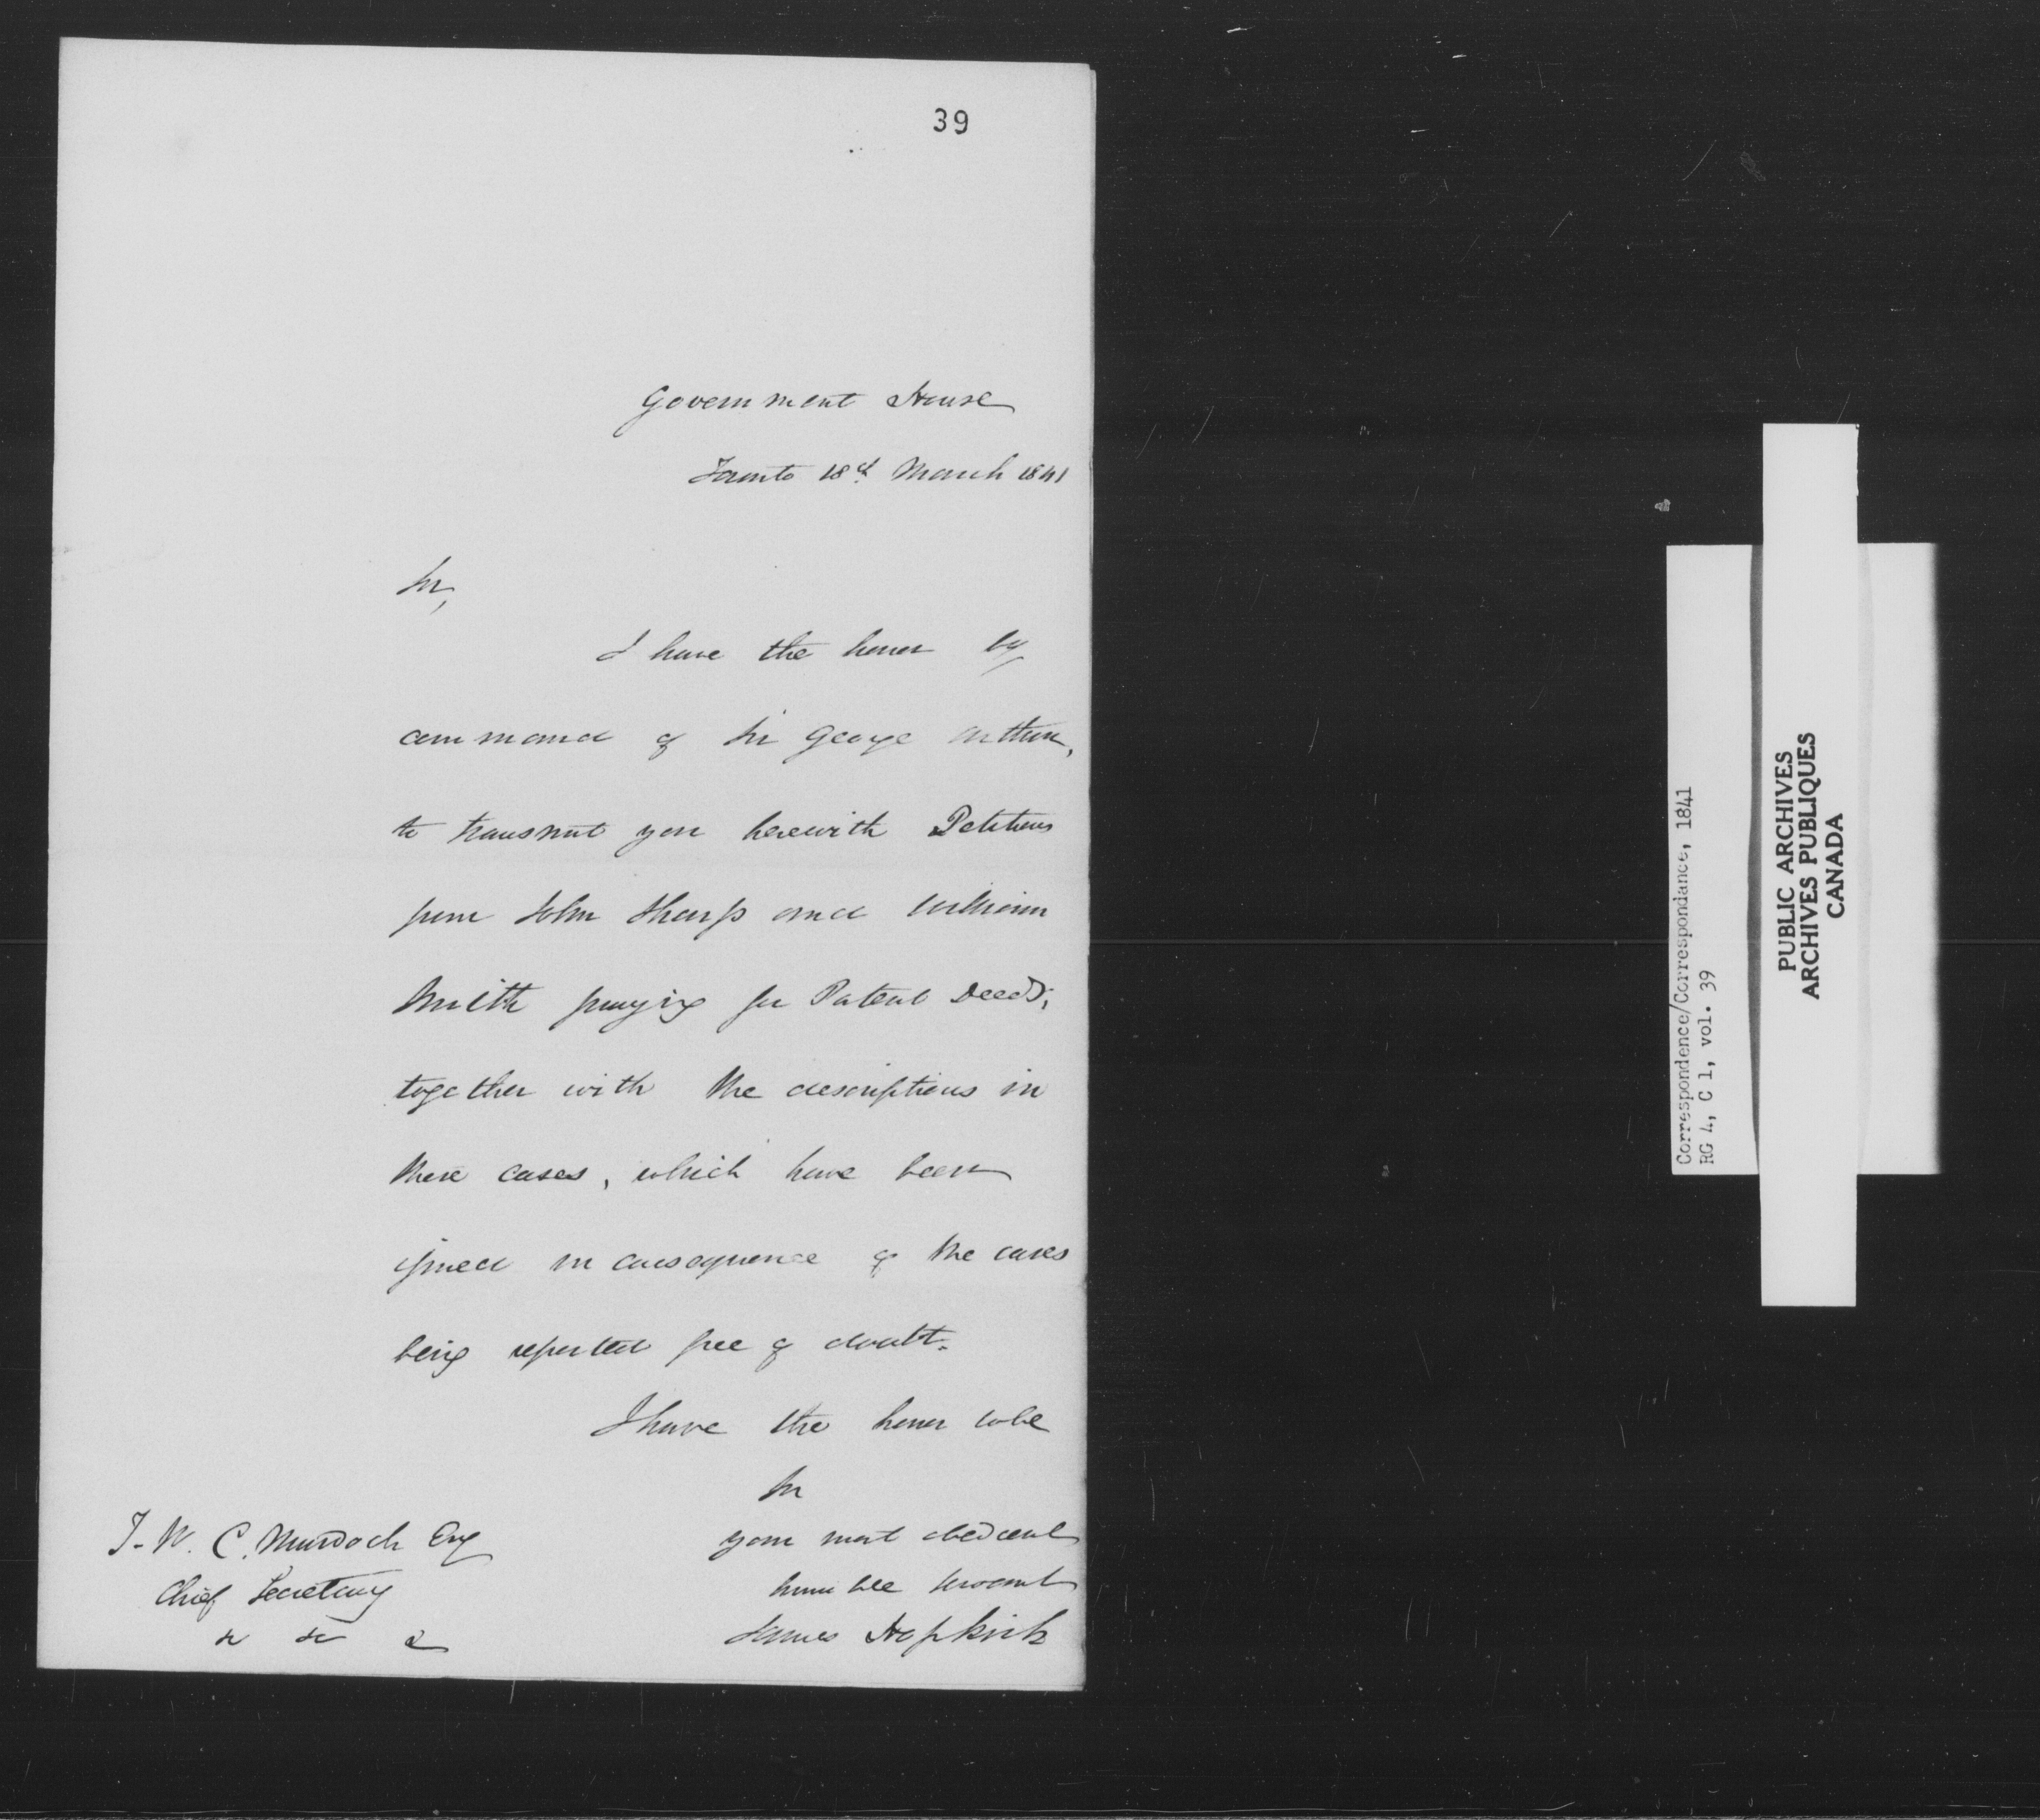 39
Government House
Toronto 18th March 1841
Sir,
I have the honor by
command of Sir George Arthur,
to transmit you herewith Petitions
from John Sharp and William
Smith praying for Patent Deeds,
together with the descriptions in
these cases, which have been
issued in consequence of the cases
being reported free of doubt.
I have the honor to be
Sir
your most obedient
humble servant
James Hopkirk
T. W. C. Murdoch Esq
Chief Secretary
&c &c &c
Correspondence/Correspondance, 1841
RG 4, C 1, vol. 39
PUBLIC ARCHIVES
ARCHIVES PUBLIQUES
CANADA